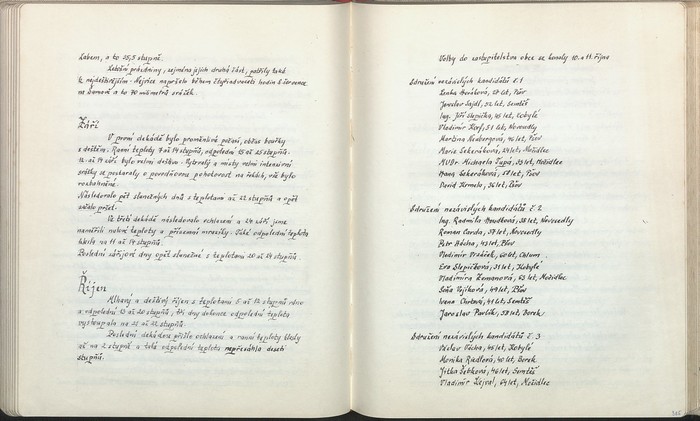 Labem, a to 35,5 stupně.
Letošní prázdniny, zejména jejich druhá část, patřily také
k nejdeštivějším. Nejvíce napršelo během čtyřiadvaceti hodin 2. července
na Šumavě a to 90 milimetrů srážek.
Září
V první dekádě bylo proměnlivé počasí, občas bouřky
s deštěm. Ranní teploty 9 až 14 stupňů, odpolední 15 až 25 stupňů.
12. až 14. září bylo velmi deštivo. Vytrvalý a místy velmi intenzivní
srážky se postaraly o povodňovou pohotovost na řekách, vše bylo
rozbahněné.
Následovalo pět slunečných dnů s teplotami až 22 stupňů a opět
začalo pršet.
Ve třetí dekádě následovalo ochlazení a 24. září jsme
naměřili nulové teploty a přízemní mrazíky. Také odpolední teplota
klesla na 11 až 14 stupňů.
Poslední zářijové dny opět slunečné s teplotami 20 až 24 stupňů.
Říjen
Mlhavý a deštivý říjen s teplotami 5 až 12 stupňů ráno
a odpoledne 13 až 20 stupňů, tři dny dokonce odpolední teplota
vystoupala na 21 až 22 stupňů.
Poslední dekádou přišlo ochlazení a ranní teploty klesly
až na 2 stupně a také odpolední teplota nepřesáhla deseti
stupňů.
Volby do zastupitelstva obce se konaly 10. a 11. října
Sdružení nezávislých kandidátů č. 1
Lenka let, Pšov
Jaroslav Sajdl, 52 let, Semtěš
Ing. Jiří Slepička, 46 let, Kobylé
Vladimír 51 let, Novosedly
Martina 46 let, Pšov
Marie Sekeráková, let, Močidlec
MUDr. Michaela Tupá, let, Močidlec
Hana Sekeráková, let, Pšov
David 36 let, Pšov
Sdružení nezávislých kandidátů č. 2
Ing. Radmila Houdková, 38 let, Novosedly
Roman let, Novosedly
Petr Hácha, 43 let, Pšov
Vladimír 60 let, Chlum
Eva Slepičková, 31 let, Kobylé
Vladimíra Zemanová, 63 let, Močidlec
Soňa Vojíková, 49 let, Pšov
Ivana 41 let, Semtěš
Jaroslav Pavlík, 58 let, Borek
Sdružení nezávislých kandidátů č. 3
Václav Vácha, 46 let, Kobylé
Monika Rudlová, 40 let, Borek
Jitka Šebková, 46 let, Semtěš
Vladimír Zejval, 64 let, Močidlec